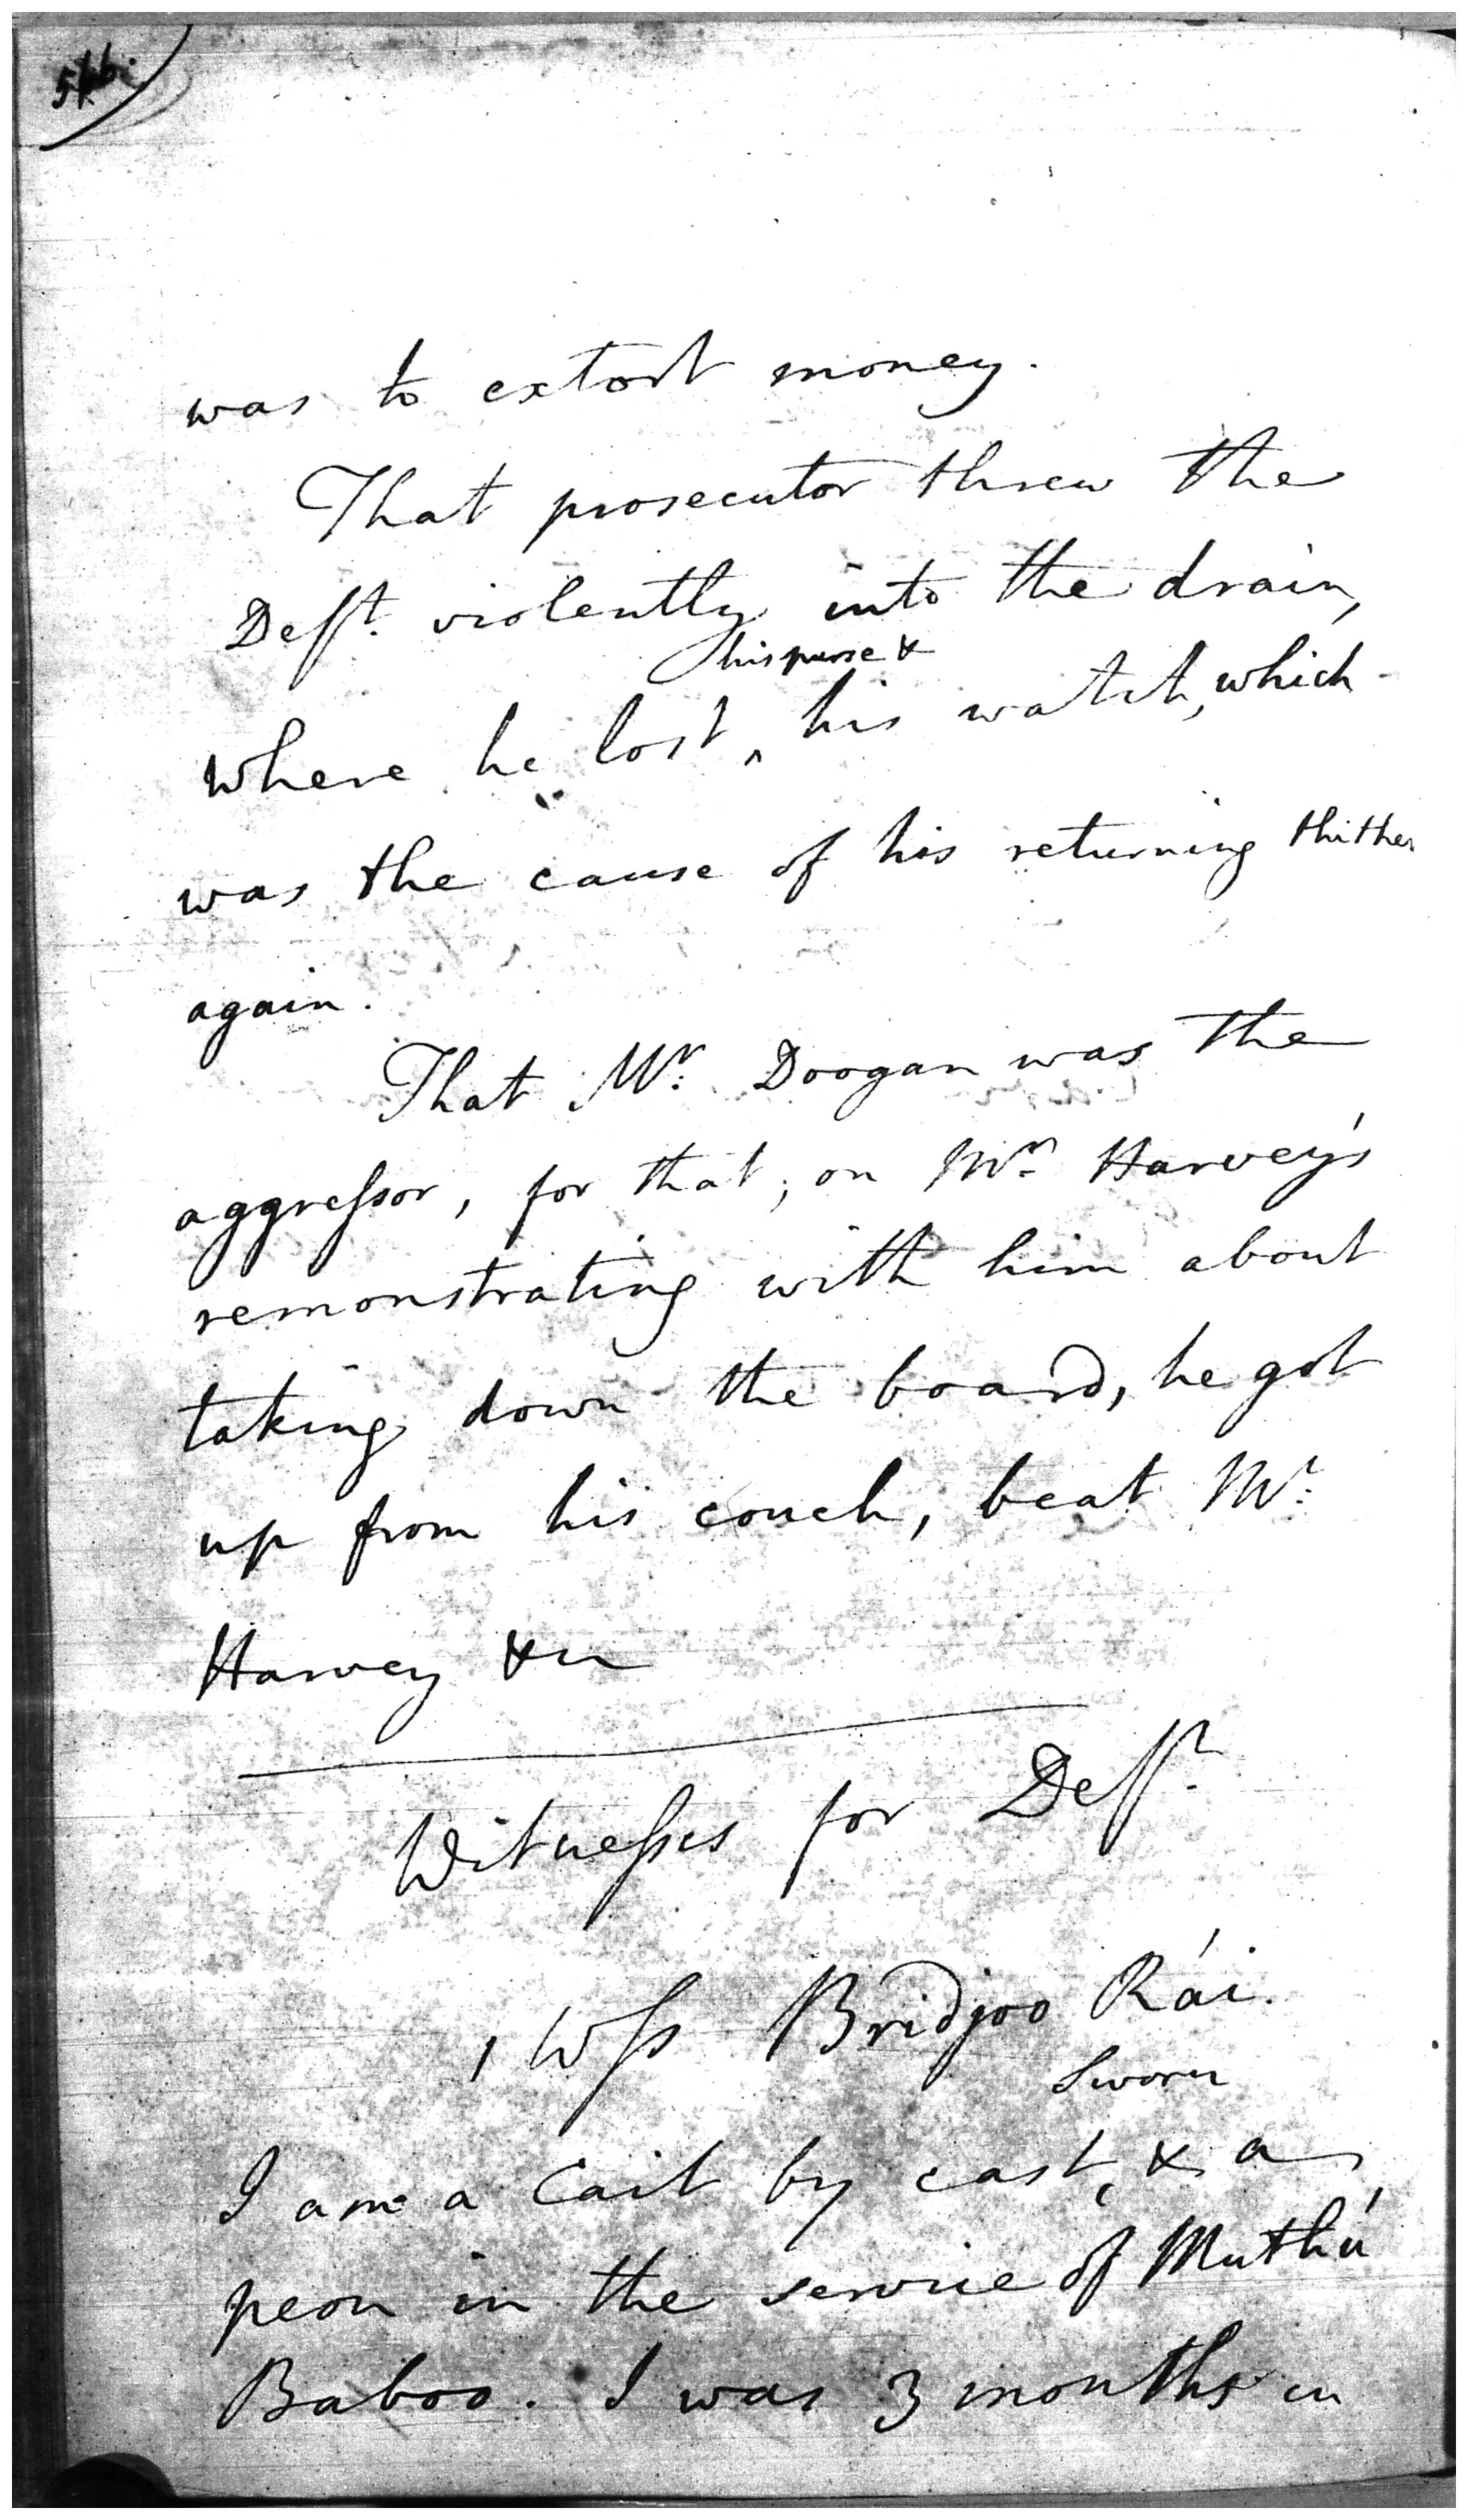 was to extort money.
That prosecutor threw the
Defft. violently into the drain,
his purse &
where he lost ^ his watch, which
was the cause of his returning thither
again.
That Mr: Doogan was the
aggressor, for that, on Mr. Harvey's
remonstrating with him about
taking down the board, he got
up from his couch, beat Mr:
Harvey &c
Witnesses for Defft.
1 Wss Bridjoo Rái.
Sworn
I am a Cait by cast, & a
peon in the service of Muthú
Baboo. I was 3 months in